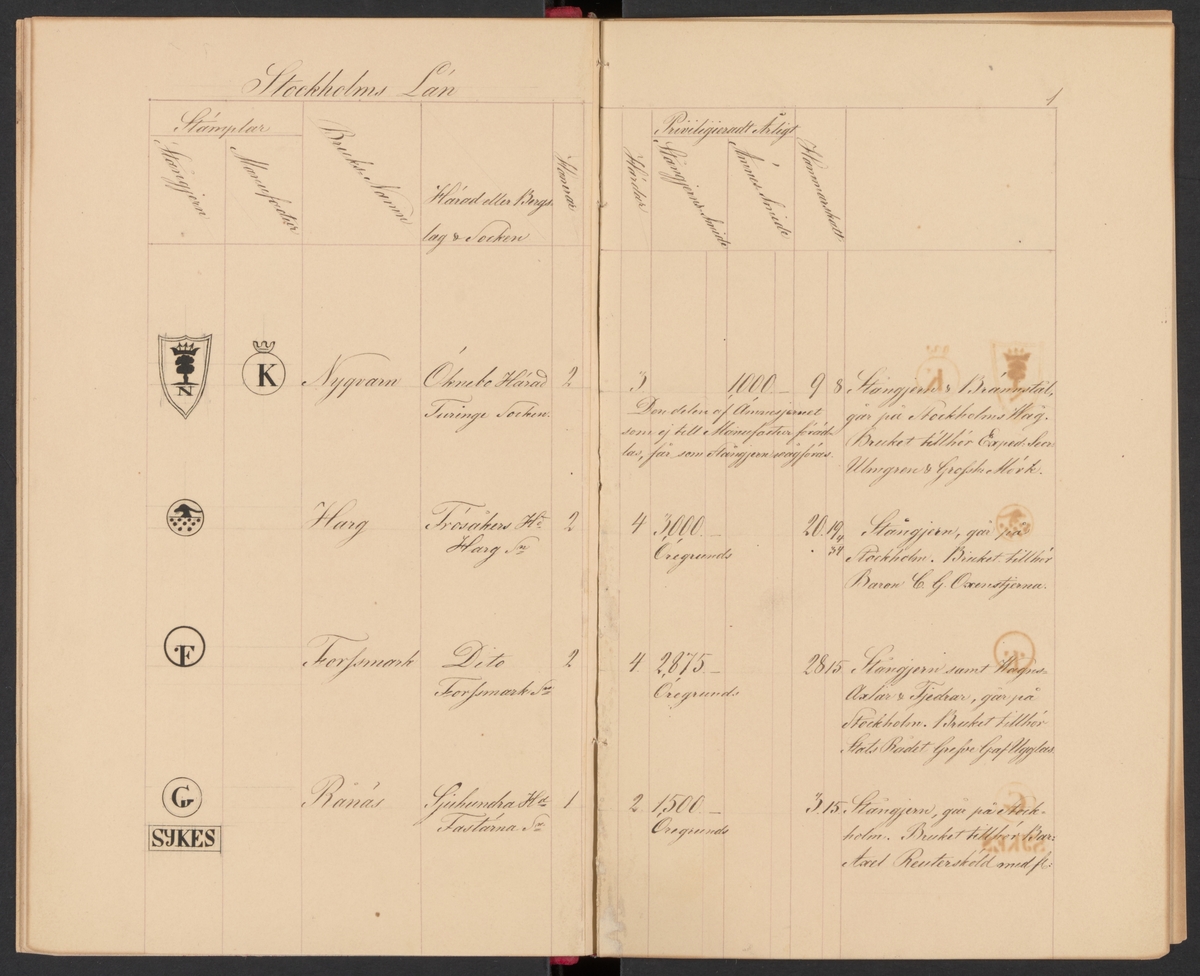 Stockholms Län
1
Stämplar
Stångjern
Manufactur
Bruks Namn
Härad eller Bergs-
lag & Socken
Hamrar
Härdar
Priviligieradt Årligt
Stångjerns Smide
Ämnes Smide
Hammarskatt
N
K
Nygvarn
Öknebo Härad
Turinge Socken.
2
3
1000 —
9 8
Den delen af Ämnesjernet
som ej till Manufactur föräd-
las, får som Stångjern vägföras.
Stångjern & Brännstål,
går på Stockholms Wåg.
Bruket tillhör Exped. Secr
Ulmgren & Grossh. Mörk.
Harg
Frösåkers Hd
Harg Sn
2
4
3,000. —
Öregrunds
20. 19,4
34
Stångjern, går på
Stockholm. Bruket tillhör
Baron C. G. Oxenstjerna.
F
Forssmark
Dito
Forssmark Sn
2
4
2,875 —
Öregrunds
28 15.
Stångjern samt Wagns-
Axlar & Fjedrar, går på
Stockholm. Bruket tillhör
Stats Rådet Grefve Gaf Ugglas
G
SYKES
Rånäs
Sjuhundra Hd
Fastärna Sn
1
2
1,500 —
Öregrunds
3. 15.
Stångjern, går på Stock-
holm. Bruket tillhör Bar:
Axel Reutersköld med fl: